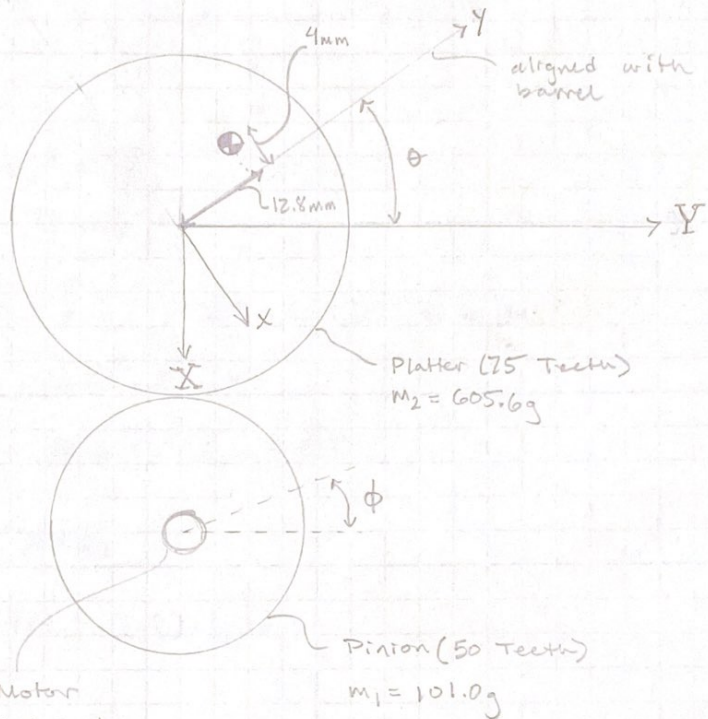 4mm
y
aligned with
barrel
θ
12.8mm
Y
x
X
Platter (75 Teeth)
m₂ = 605.6g
ϕ
Pinion (50 Teeth)
m₁ = 101.0g
Motor